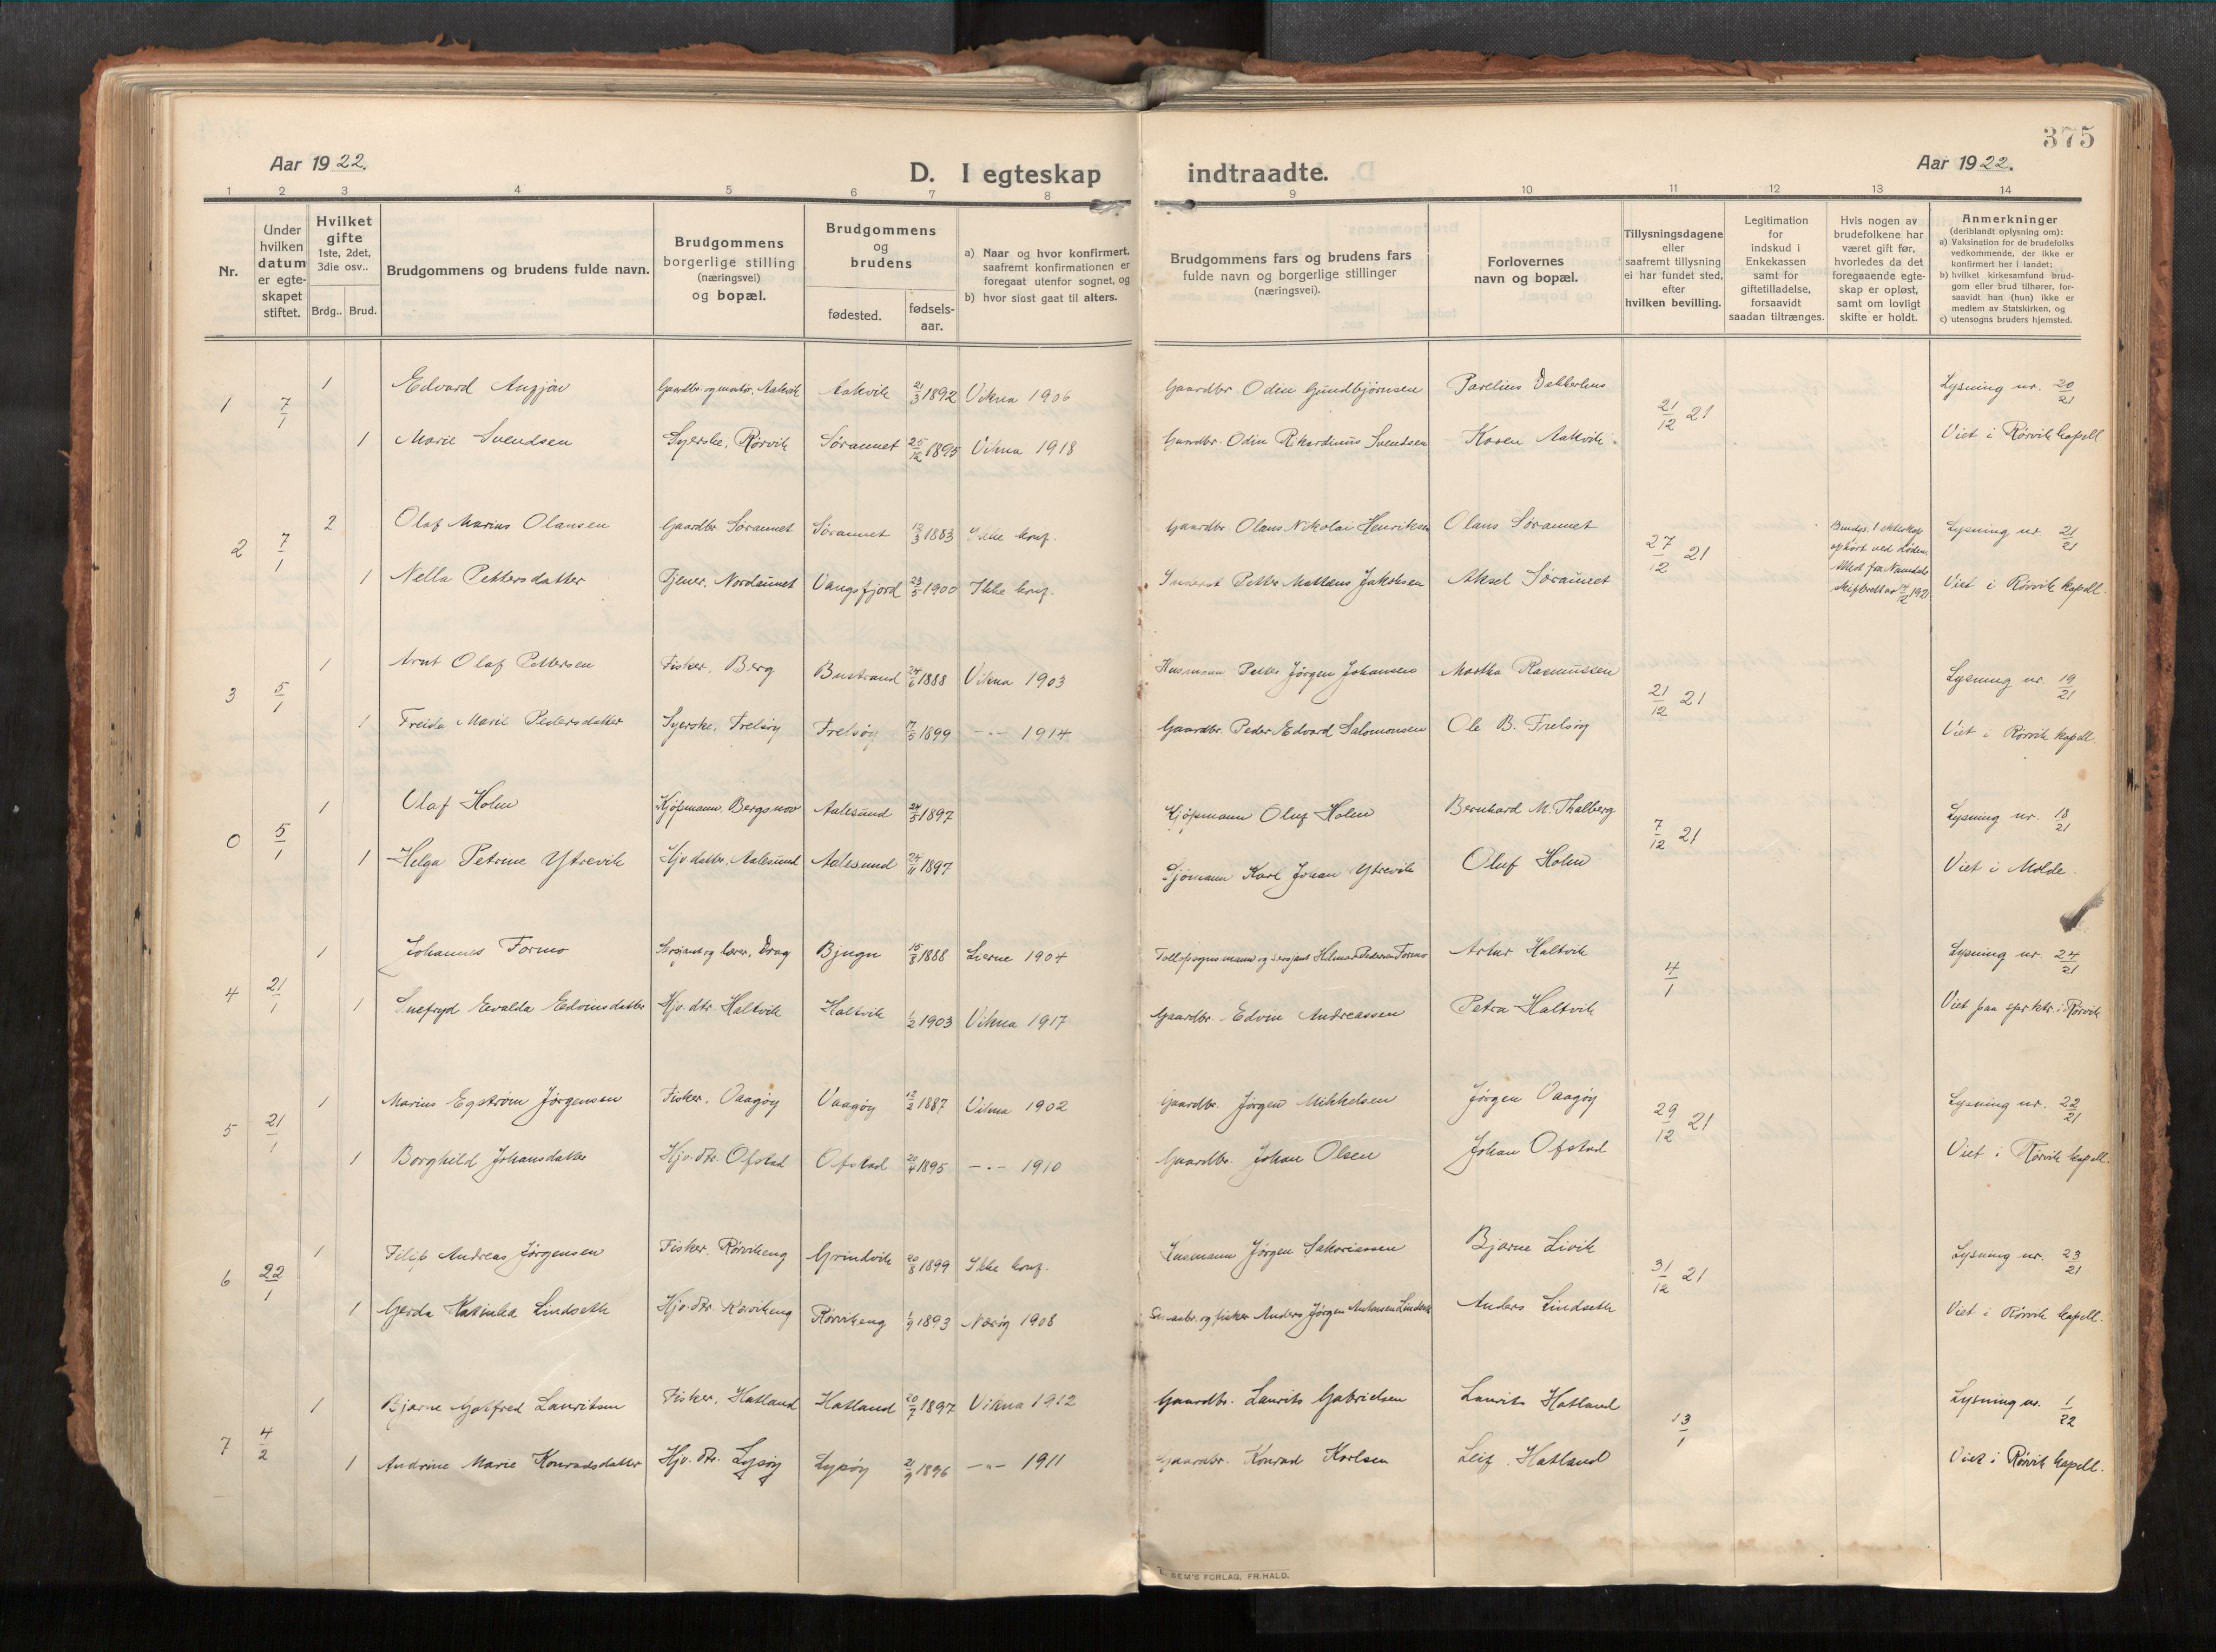 375
Aar 1922.
D. I egteskap indtraadte.
Aar 1922.
1 2 3 4 5 6 7 8 9 10 11 12 13 14
Nr.
Under hvilken datum er egte- skapet stiftet.
Hvilket gifte 1ste, 2det, 3die osv..
Brdg.. Brud.
Brudgommens og brudens fulde navn.
Brudgommens borgerlige stilling (næringsvei) og bopæl.
Brudgommens og brudens
fødested.
fødsels- aar.
a) Naar og hvor konfirmert, saafremt konfirmationen er foregaat utenfor sognet, og
b) hvor sidst gaat til alters.
Brudgommens fars og brudens fars fulde navn og borgerlige stillinger (næringsvei).
Forlovernes navn og bopæl.
Tillysningsdagene eller saafremt tillysning ei har fundet sted, efter hvilken bevilling.
Legitimation for indskud i Enkekassen samt for giftetilladelse, forsaavidt saadan tiltrænges.
Hvis nogen av brudefolkene har været gift før, hvorledes da det foregaaende egte- skap er opløst, samt om lovligt skifte er holdt.
Anmerkninger (deriblandt oplysning om):
a) Vaksination for de brudefolks vedkommende, der ikke er konfirmert her i landet;
b) hvilket kirkesamfund brud- gom eller brud tilhører, for- saavidt han (hun) ikke er medlem av Statskirken, og
c) utensogns bruders hjemsted.
1 7/1 1 Edvard Anzjøn Gaardbr. og montør, Aakvik Aakvik 21/3 1892 Vikna 1906 Gaardbr. Oden Gundbjørnsen Parelius 21/12 21 Lysning nr. 20/21
1 Marie Svendsen Syerske, Rørvik Sørannet 25/12 1895 Vikna 1918 Gaardbr. Odin Rikardinus Svendsen Kosen Aakvik. Viet i Rørvik kapell
2 7/1 2 Olaf Marius Olausen Gaardbr. Sørannet Sørannet 13/3 1883 Ikke konf. Gaardbr. Olaus Nikolai Henriksen Olaus Sørannet 27/12 21 Brudgs. 1 ekteskap ophørt ved døden. Lysning nr. 21/21
1 Nella Pettersdatter Tjener, Nordaunet Vangsfjord 23/5 1900 Ikke konf. Petter Mattæus Jakobsen Aksel Sørannet Attest fra Namdals skifterett av 14/2 192 Viet i Rørvik kapell.
3 5/1 1 Arnt Olaf Pettersen Fisker, Berg Bustrand 24/6 1888 Vikna 1903 Husmann Petter Jørgen Johansen Martha Rasmussen 21/12 21 Lysning nr. 19/21
1 Freida Marie Pedersdatter Syerske, Frelsøy Frelsøy 7/5 1899 -"- 1914 Gaardbr. Peder Edvard Salomonsen Ole B. Frelsøy Viet i Rørvik kapell.
0 5/1 1 Olaf Holm Kjøpmann, Bergsnov Aalesund 24/5 1897 Kjøpmann Oluf Holm Bernhard M. Thalberg 7/12 21 Lysning nr. 18/21
1 Helga Petrine Ytrevik Hjv. datter, Aalesund Aalesund 24/11 1897 Sjømann Karl Johan Ytrevik Oluf Holm Viet i Molde.
4 21/1 1 Johannes Formo Sersjant og lærer, Drag Bjugn 15/8 1888 Lierne 1904 Tolloppsynsmann og sersjant Hilmar Pedersen Formo Artur Haltvik 4/1 Lysning nr. 24/21
1 Snefryd Evalda Edvinsdatter Hjv. dtr. Haltvik Haltvik 1/2 1903 Vikna 1917 Gaardbr. Edvin Andreassen Petra Haltvik Viet paa spr.ktr. i Rørvik
5 21/1 1 Marius Egstrøm Jørgensen Fisker, Vaagøy Vaagøy 12/2 1887 Vikna 1902 Gaardbr. Jørgen Mikkelsen Jørgen Vaagøy 29/12 21 Lysning nr. 22/21
1 Borghild Johansdatter Hjv. dtr. Ofstad Ofstad 20/4 1895 -"- 1910 Gaardbr. Johan Olsen Johan Ofstad Viet i Rørvik kapell.
6 22/1 1 Filip Andreas Jørgensen Fisker, Rørvikeng Grindvik 20/8 1899 Ikke konf. Husmann Jørgen Sakariassen Bjarne Livik 31/12 21 Lysning nr. 23/21
1 Gerda Katinka Lindseth Hjv. dtr. Rørvikeng Rørvikeng 1/9 1893 Nærøy 1908 og fisker Anders Jørgen Antonsen Lindseth Anders Lindseth Viet i Rørvik kapell.
7 4/2 1 Bjarne Gotfred Lauritsen Fisker, Hatland Hatland 20/7 1897 Vikna 1912 Gaardbr. Laurits Gabrielsen Laurits Hatland 13/1 Lysning nr. 1/22
1 Andrine Marie Konradsdatter Hjv. dtr. Lysøy Lysøy 21/9 1896 -"- 1911 Gaardbr. Konrad Karlsen Leif Hatland Viet i Rørvik kapell.
SEM'S FORLAG, FR.HALD.